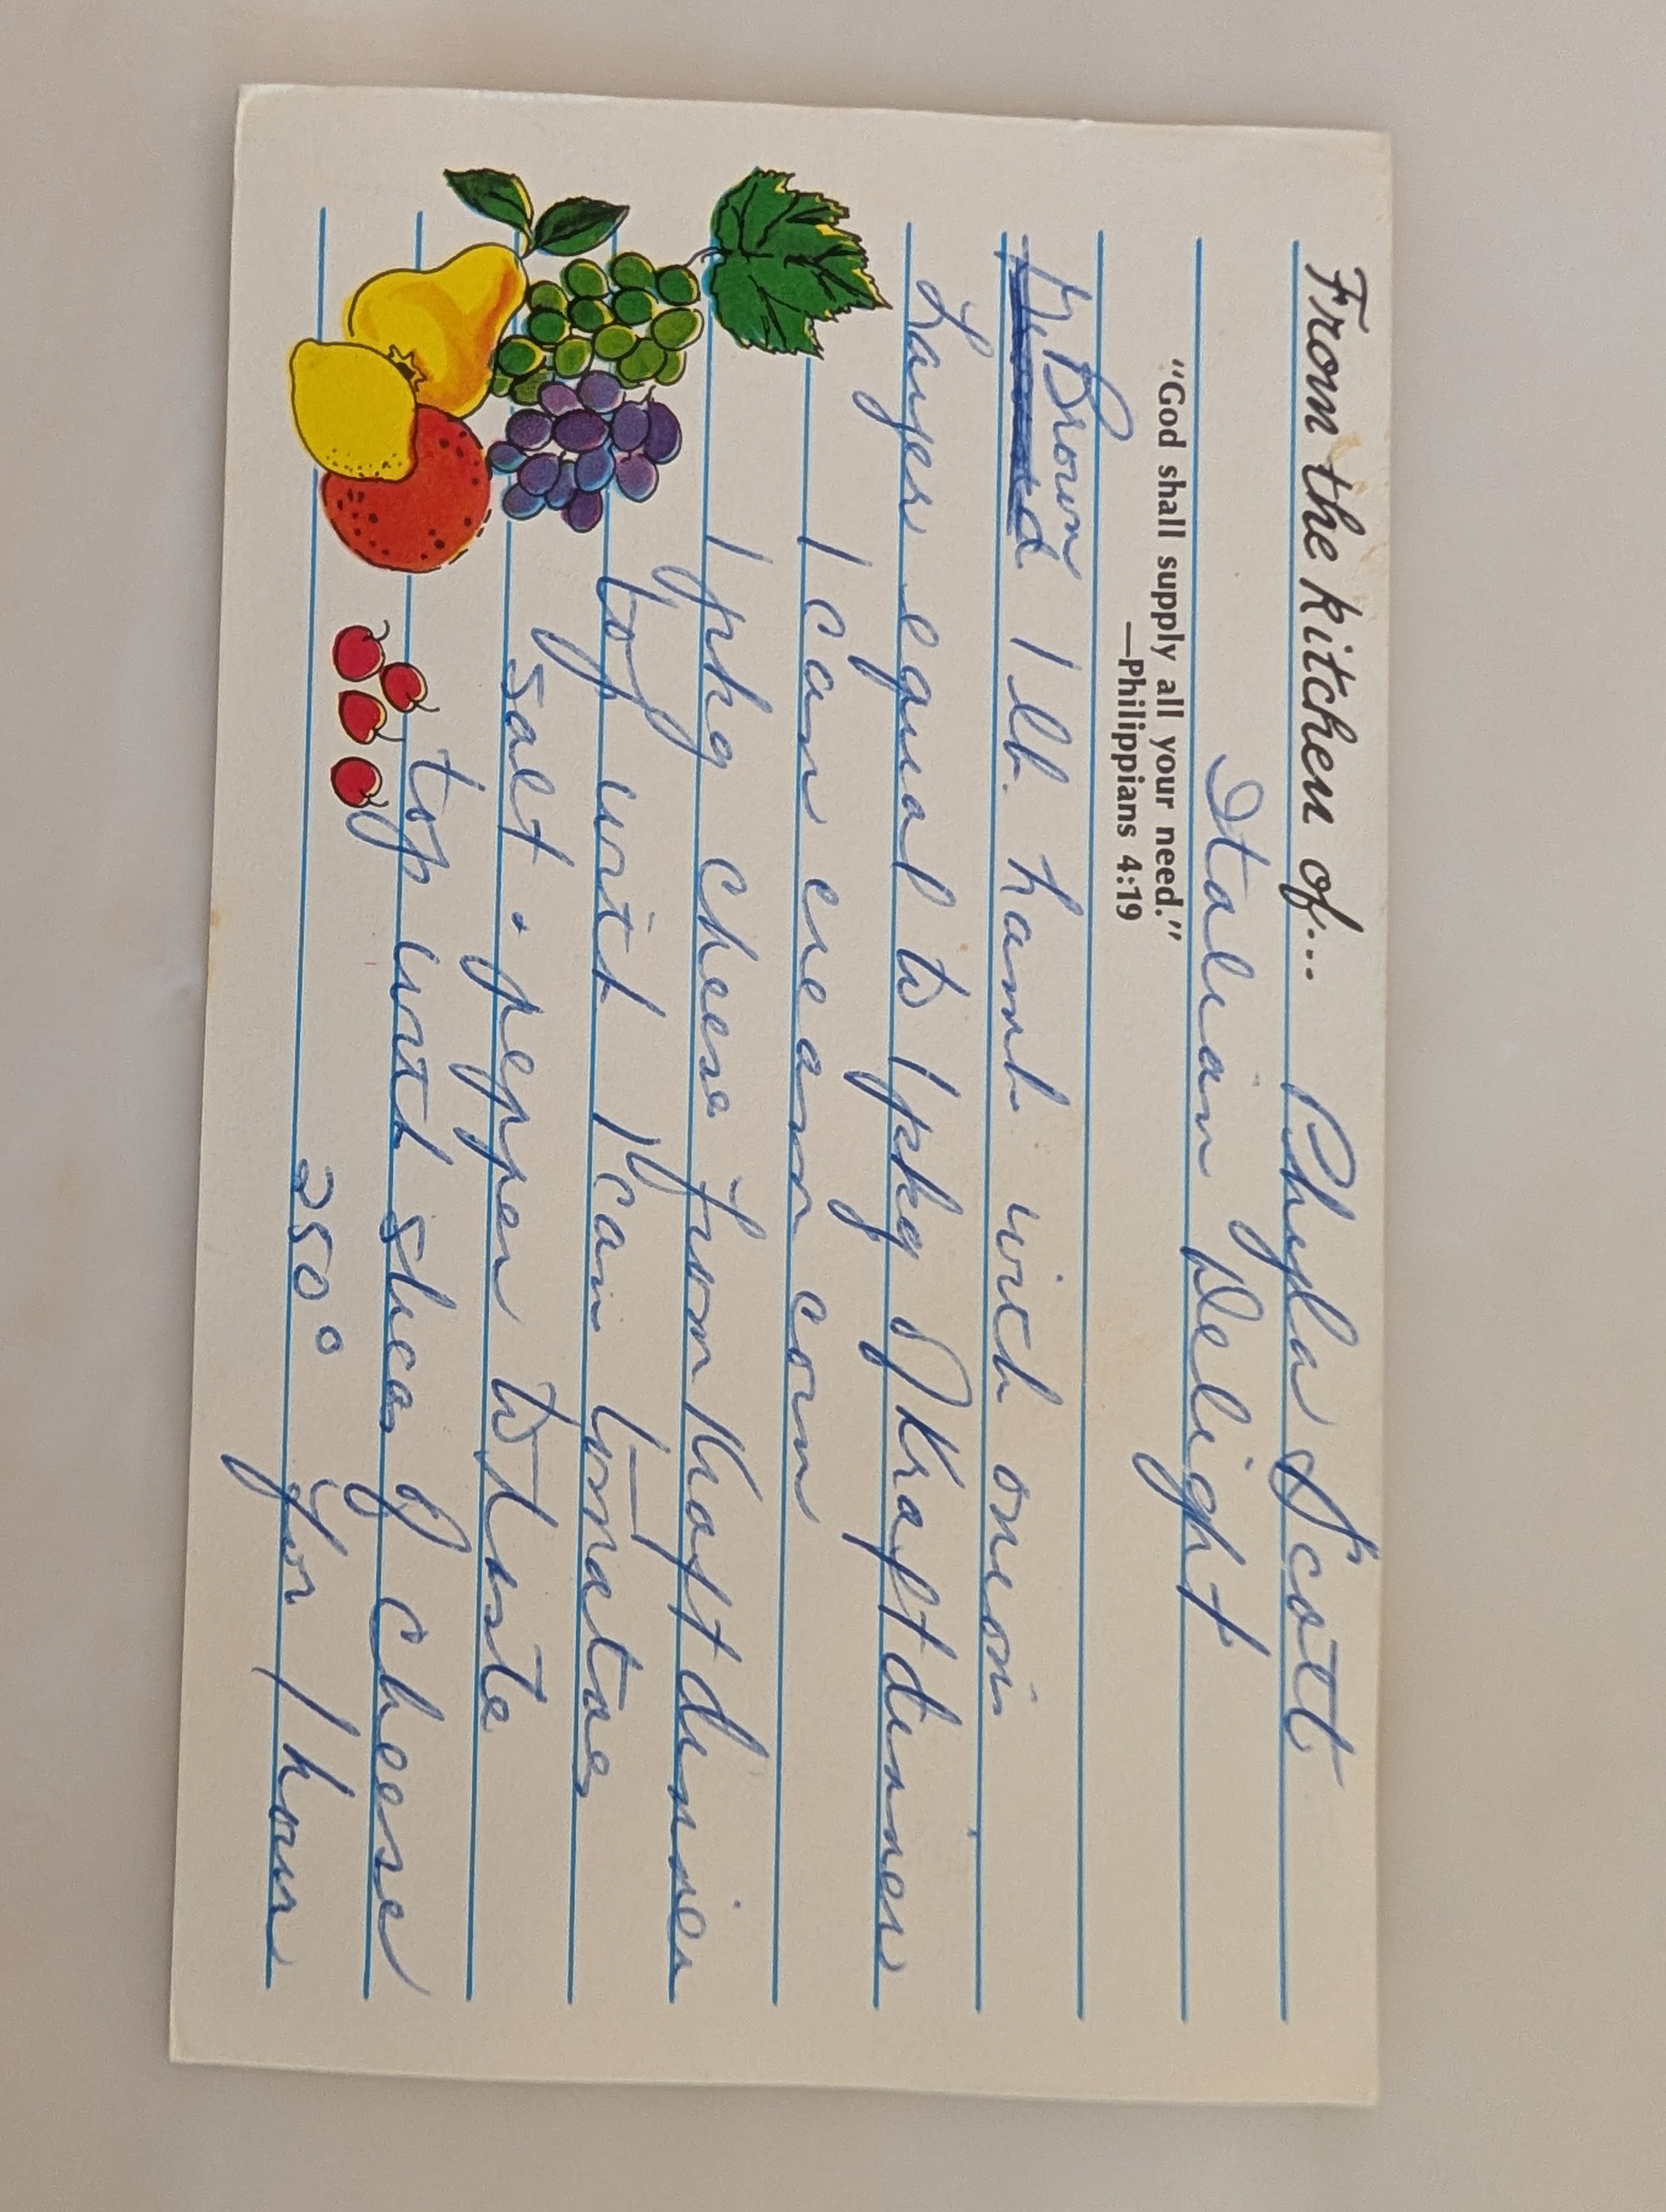 From the kitchen of... Phyla Scott
Italian Delight
"God shall supply all your need."
—Philippians 4:19
Brown
1 lb. hamb. with onion
Layer equal to 1 pkg of Kraft dinner
1 can cream corn
1 pkg cheese from Kraft dinner
top with 1 can tomatoes
salt & pepper to taste
top with slices of cheese
250° for 1 hour